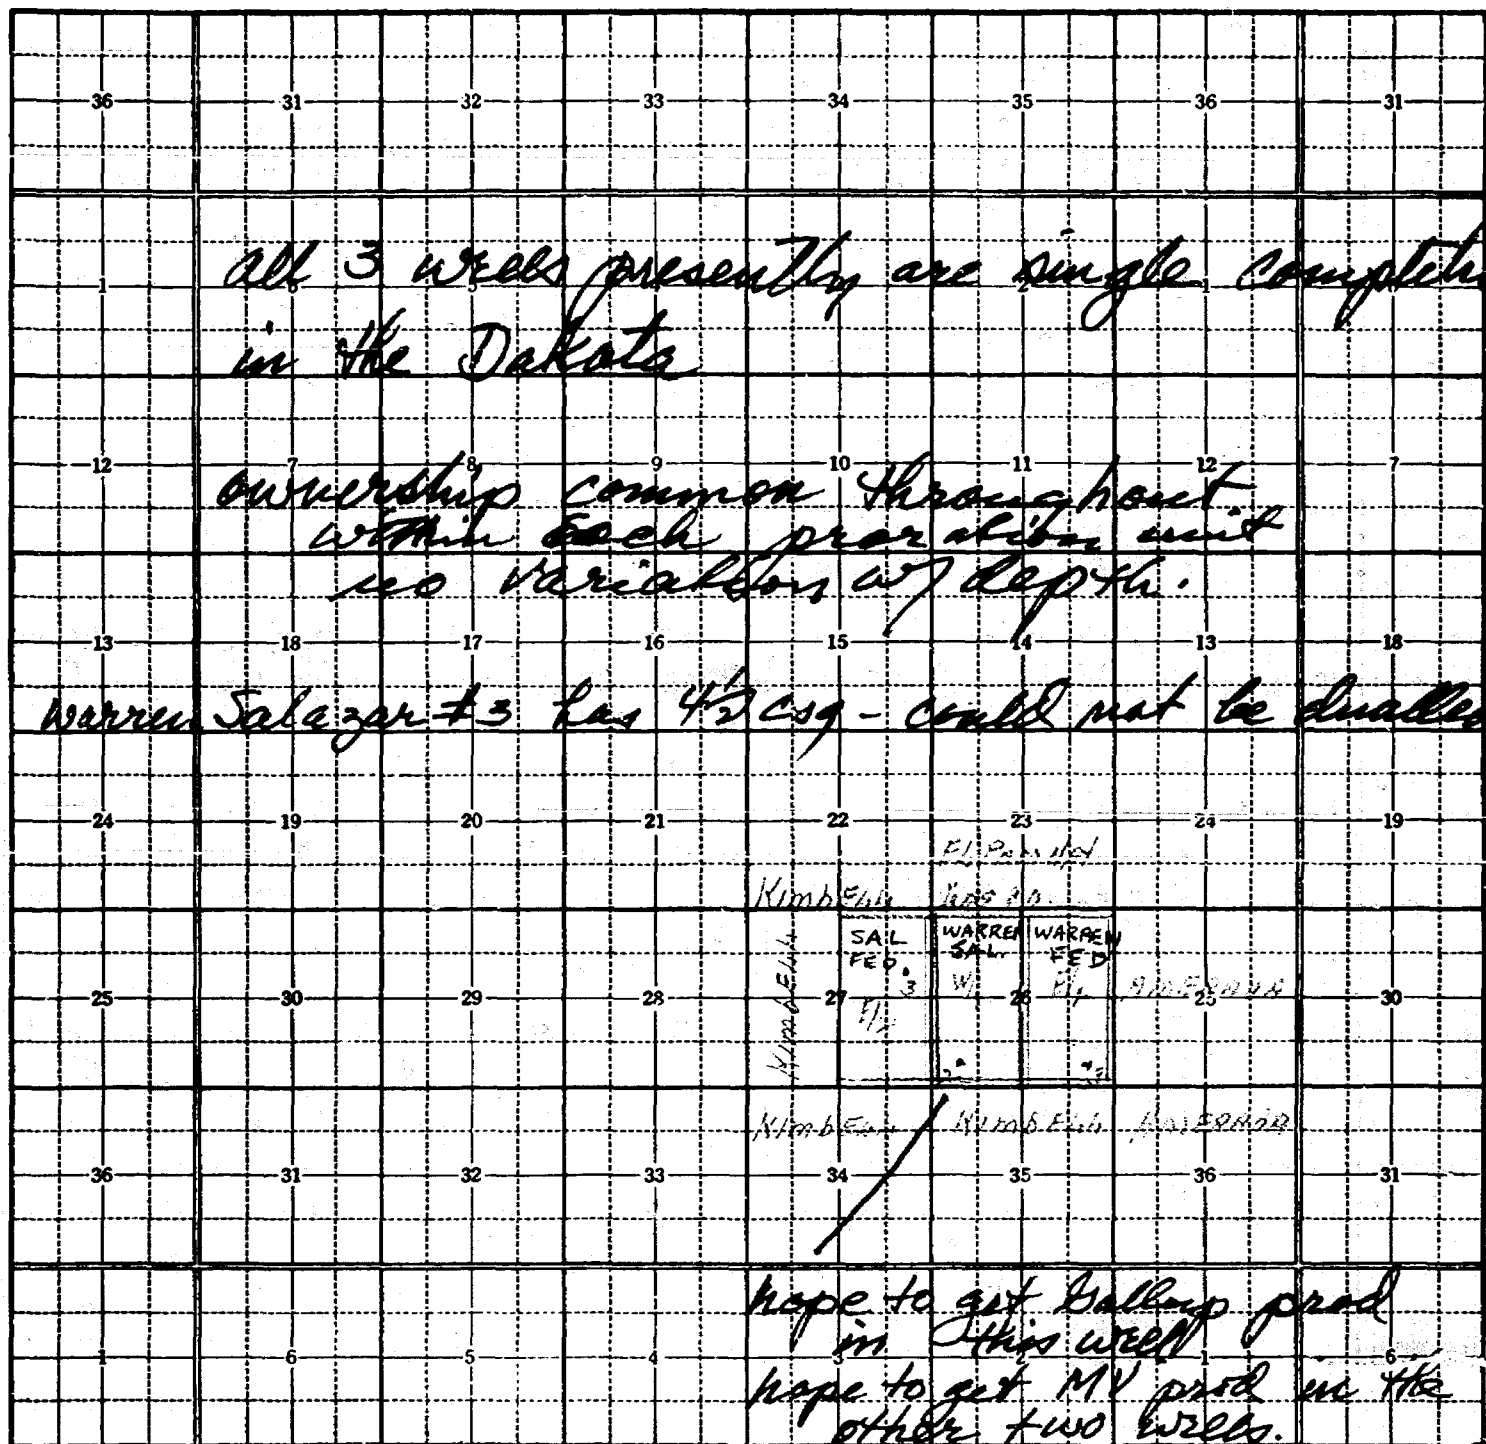 36 31 32 33 34 35 36 31
all 3 wells presently are single
1 5 1
in the Dakota
12 7 8 9 10 11 12 7
ownership common throughout
within each proration unit
no variation w/ depth.
13 18 17 16 15 14 13 18
Warren Salazar #3 has 4½ csg - could not be dualled
24 19 20 21 22 23 24 19
El Paso Nat
Kimbell Gas Co.
SAL FED. WARREN SAL. WARREN FED
Kimbell
3
25 30 29 28 27 26 25 30
E/2 W/
Kimbell Kimbell
36 31 32 33 34 35 36 31
hope to get Gallup prod
in this well
1 6 5 4 3 2 1 6
hope to get MV prod in the
other two wells.